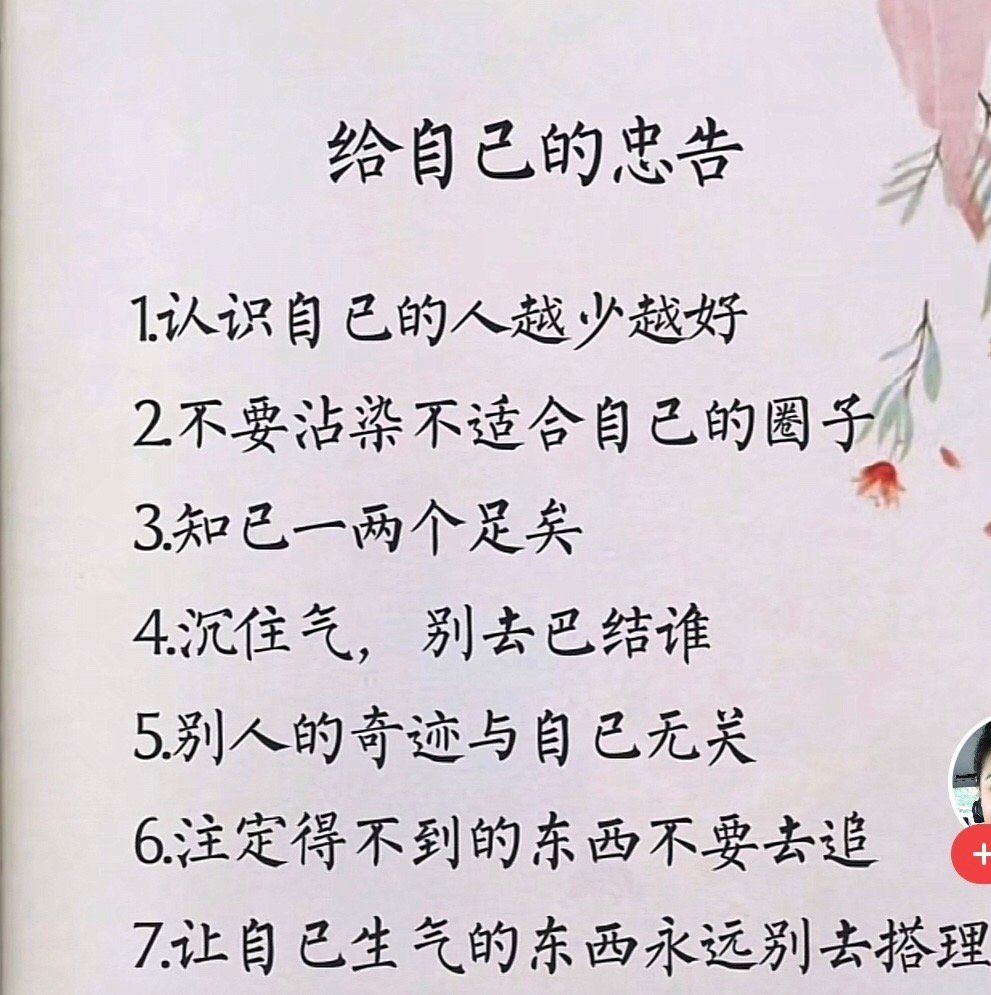 给自己的忠告
1.认识自己的人越少越好
2.不要沾染不适合自己的圈子
3.知己一两个足矣
4.沉住气，别去巴结谁
5.别人的奇迹与自己无关
6.注定得不到的东西不要去追
7.让自己生气的东西永远别去搭理